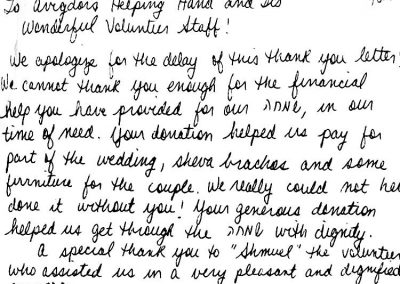 To Avigdors Helping Hand and Its
Wonderful Volunteer Staff!
We apologize for the delay of this thank you letter!
We cannot thank you enough for the financial
help you have provided for our שמחה, in our
time of need. Your donation helped us pay for
part of the wedding, sheva brachos and some
furniture for the couple. We really could not ha
done it without you! Your generous donation
helped us get through the שמחה with dignity.
A special thank you to "Shmuel" the volunteer
who assisted us in a very pleasant and dignified